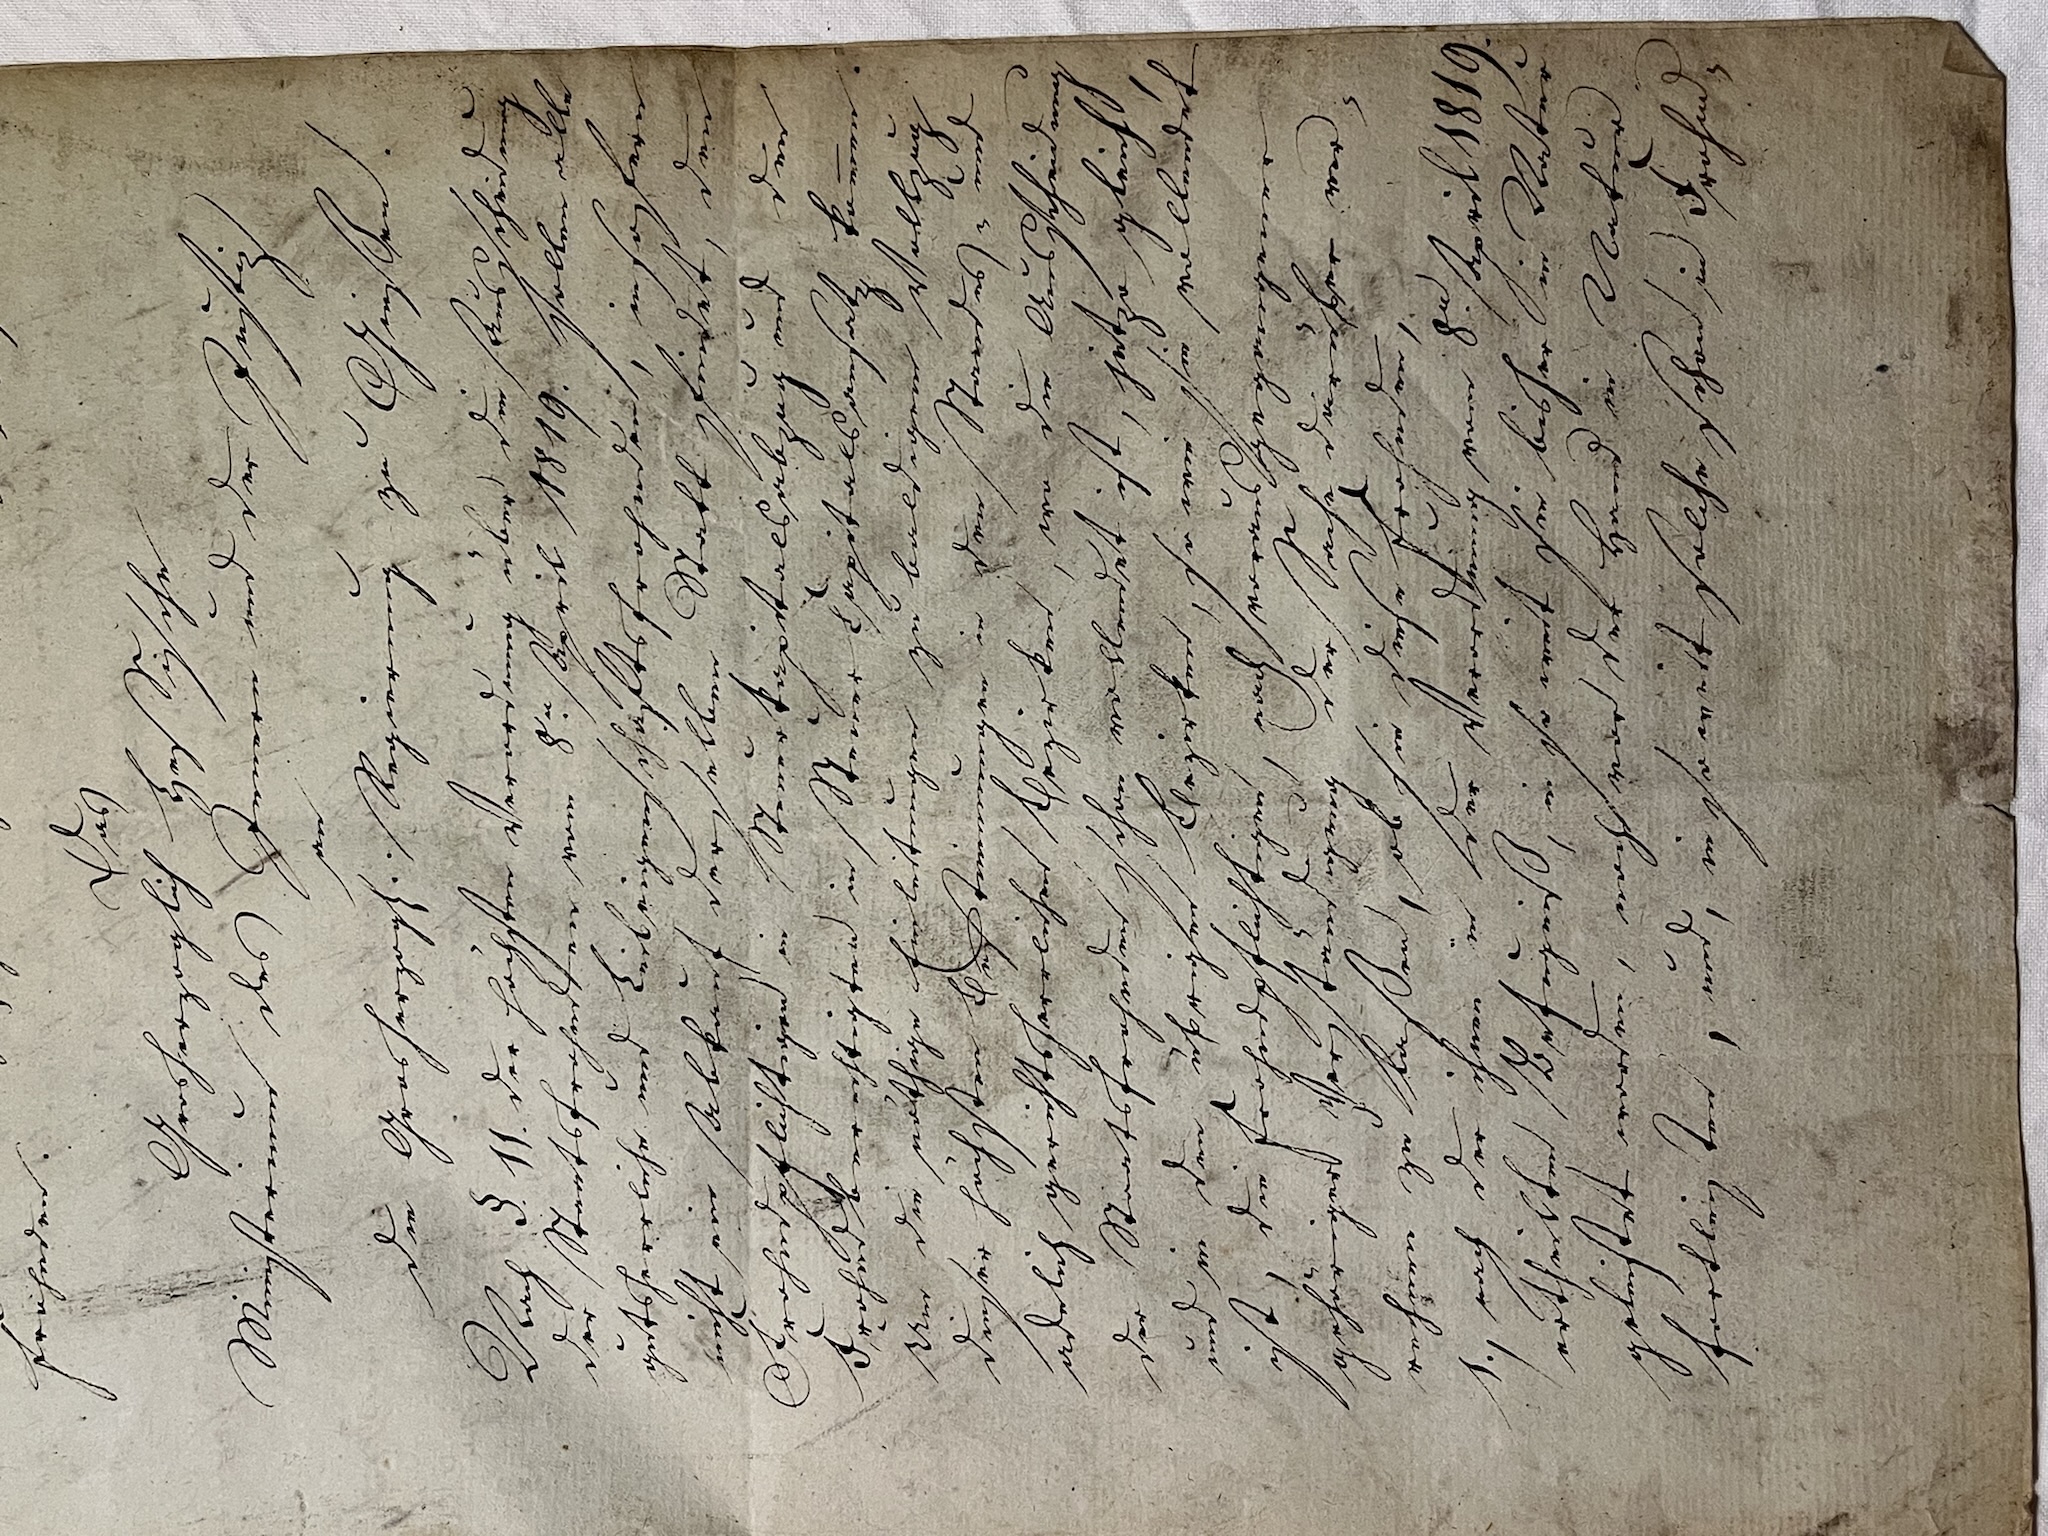 Frohnden.
Das
Grosherzoglich Hessische
Ministerium des Innern und der Justiz
an
die Grosherzogl. Regierung zu Gießen.
Nach §. 11. der höchsten Verordnung über die Ausscheidung
der Staatsfrohnden vom 8n. April 1819. sollen alle
gutsherrliche und Leibeigenschaftsfrohnden, in sofern
nicht ein Abkauf derselben Statt findet, den
Frohndpflichtigen in Steuerkapitalsabzug und den
Frohndberechtigten in Steuer Capitalsansatz kom̅en.
Um die nöthige Einleitungen zu baldigem Vollzug
dieser höchsten Bestimmungen in den Standes- und
adelich gerichtsherrlichen Bezirken, wo die Ausscheidung
der Staatsfrohnden schon vollendet ist, jetzo gleich,
und in den übrigen Bezirken, so wie sie vollendet
ist, die Frohndpflichtigen, nach vorausgegangener
gehöriger Verständigung der Sache darüber ver-
nehmen zu laßen, ob sie diese Frohnden,
1., nach der ihnen in der Verordnung vom 8n. April 1819.
ertheilten Befugniß, in so weit sie bisher in Natur
geleistet worden, noch vor der Hand in Natur
fortleisten, und, in so weit solche schon in Frohnd-